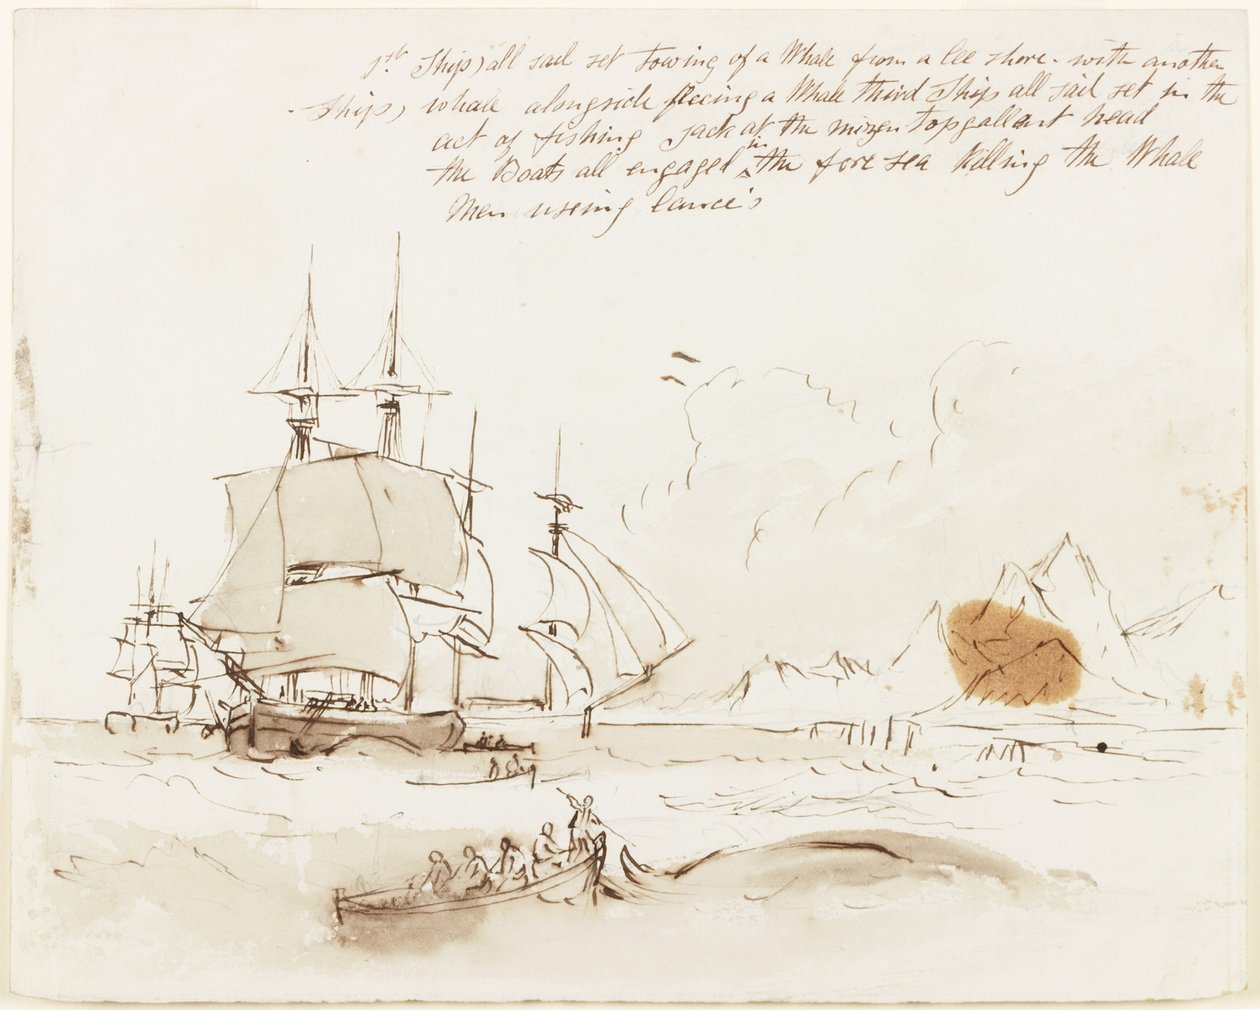 1st Ship) all sail set towing of a Whale from a lee shore - with another
- Ship, whale alongside fleeing a Whale third Ship all sail set in the
act of fishing Jack at the mizen topgallant head
the Boats all engaged in the fore sea killing the Whale
Men useing lance's